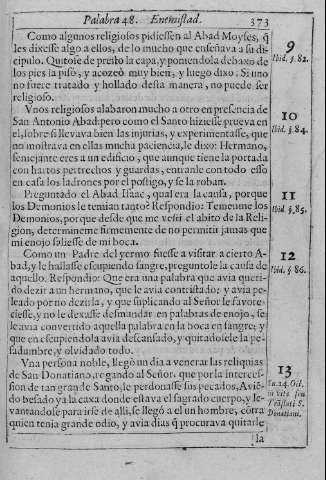 Palabra 48. Enemistad. 373
Como algunos religiosos pidiessen al Abad Moyses, q̃
les dixesse algo a ellos, de lo mucho que enseñava a su di-
cipulo. Quitose de presto la capa, y poniendola debaxo de
los pies la pisò, y acozeò muy bien, y luego dixo: Si uno
no fuere tratado y hollado desta manera, no puede ser
religioso.
9
Ibid. §. 82.
Unos religiosos alabaron mucho a otro en presencia de
San Antonio Abad: pero como el Santo hiziesse prueva en
el, sobre si llevava bien las injurias, y experimentasse, que
no mostrava en ellas mucha paciencia, le dixo: Hermano,
semejante eres a un edificio, que aunque tiene la portada
con hartos pertrechos y guardas, entranle con todo esso
en casa los ladrones por el postigo, y se la roban.
10
Ibid. §. 84.
Preguntado el Abad Isaac, qual era la causa, porque
los Demonios le temian tanto? Respondio: Temenme los
Demonios, porque desde que me vesti el abito de la Reli-
gion, determineme firmemente de no permitir jamas que
mi enojo saliesse de mi boca.
11
Ibid. §. 85.
Como un Padre del yermo fuesse a visitar a cierto A-
bad, y le hallasse escupiendo sangre, preguntole la causa de
aquello. Respondio: Que era una palabra que avia queri-
do dezir a un hermano, que le avia contristado: y avia pe-
leado por no dezirla, y que suplicando al Señor le favore-
ciesse, y no le dexasse desmandar en palabras de enojo, se
le avia convertido aquella palabra en la boca en sangre, y
que en escupiendola avia descansado, y quitadosele la pe-
sadumbre, y olvidado todo.
12
Ibid. §. 86.
Una persona noble, llegò un dia a venerar las reliquias
de San Donatiano, rogando al Señor, que por la interces-
sion de tan grande Santo, le perdonasse sus pecados. Aviẽ-
do besado ya la caxa donde estava el sagrado cuerpo, y le-
vantandose para irse de alli, se llegò a el un hombre, cõtra
quien tenia grande odio, y avia dias q̃ procurava quitarle
la
13
in vita
S.
Donatiani.